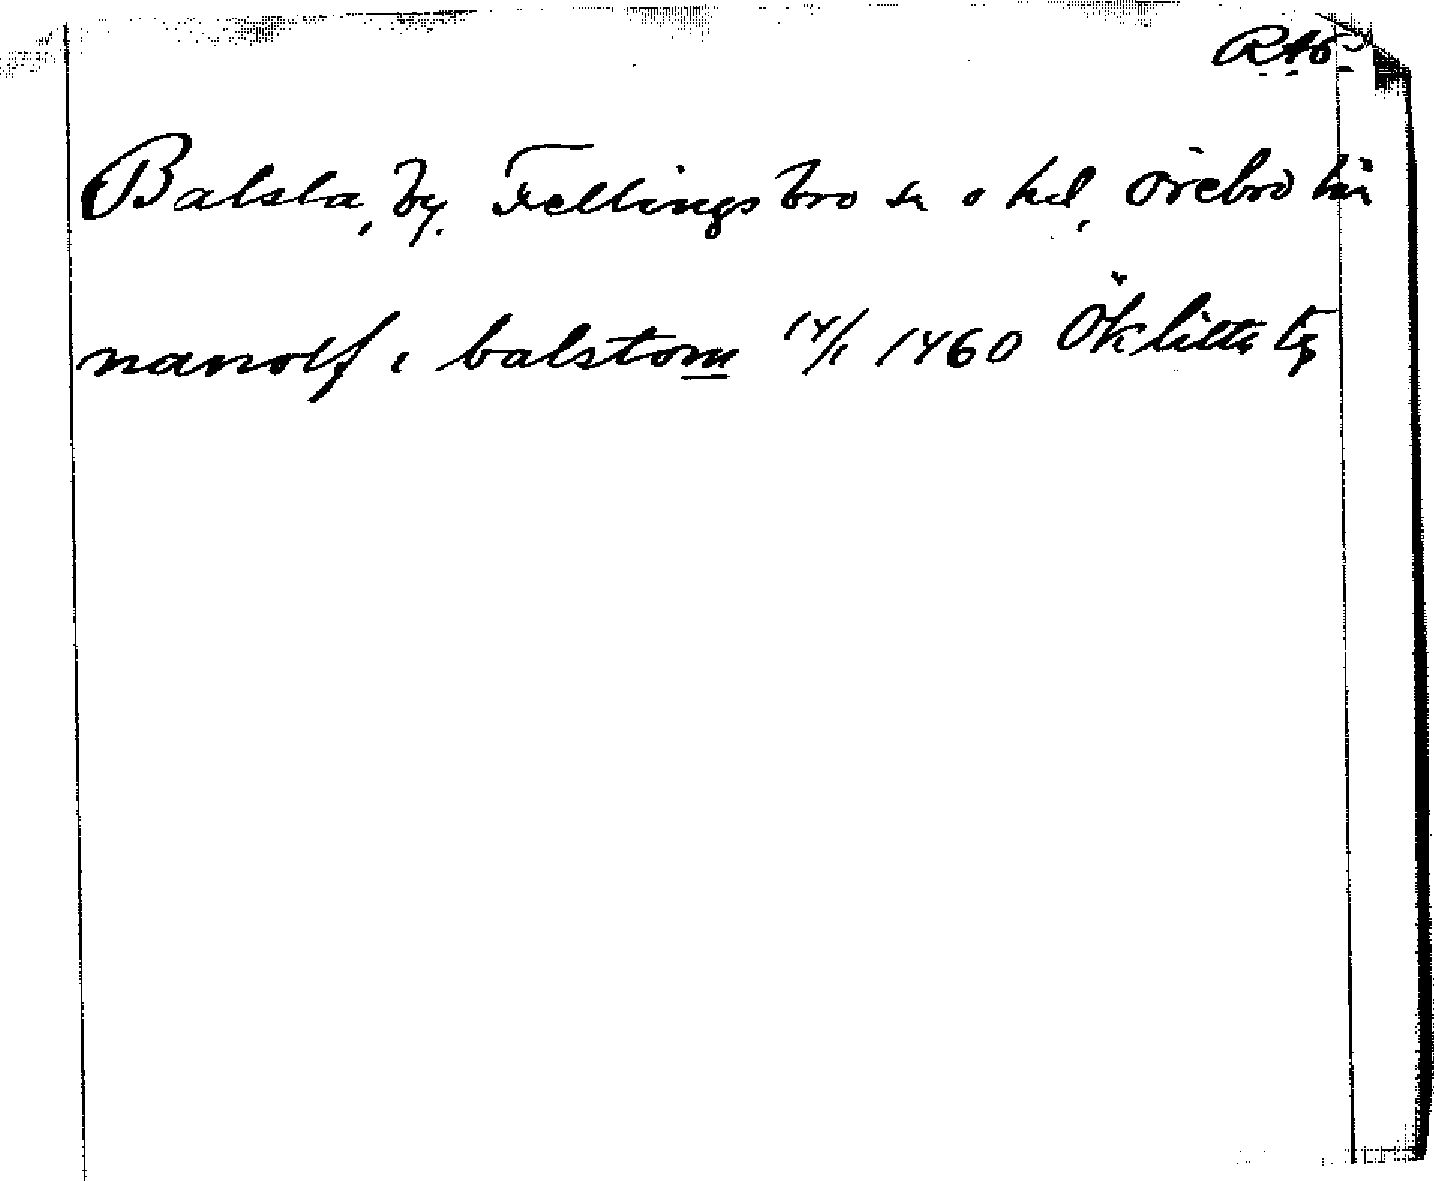 RAp
Balsta, by. Fellingsbro sn o hd, Örebro län
nanolf i balstom 14/1 1460 Öklitta